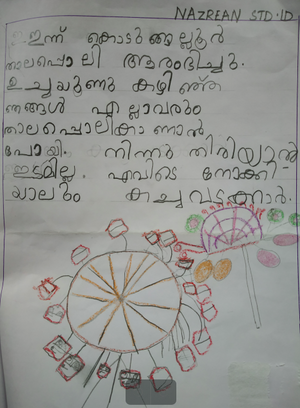 NAZREAN STD·1D
ഇന്ന് കൊടുങ്ങല്ലൂർ
താലപ്പൊലി ആരംഭിച്ചു.
ഉച്ചയൂണു കഴിഞ്ഞ്
ഞങ്ങൾ എല്ലാവരും
താലപ്പൊലികാണാൻ
പോയി. നിന്നു തിരിയുവാൻ
ഇടമില്ല. എവിടെ നോക്കി-
യാലും കച്ചവടക്കാർ.